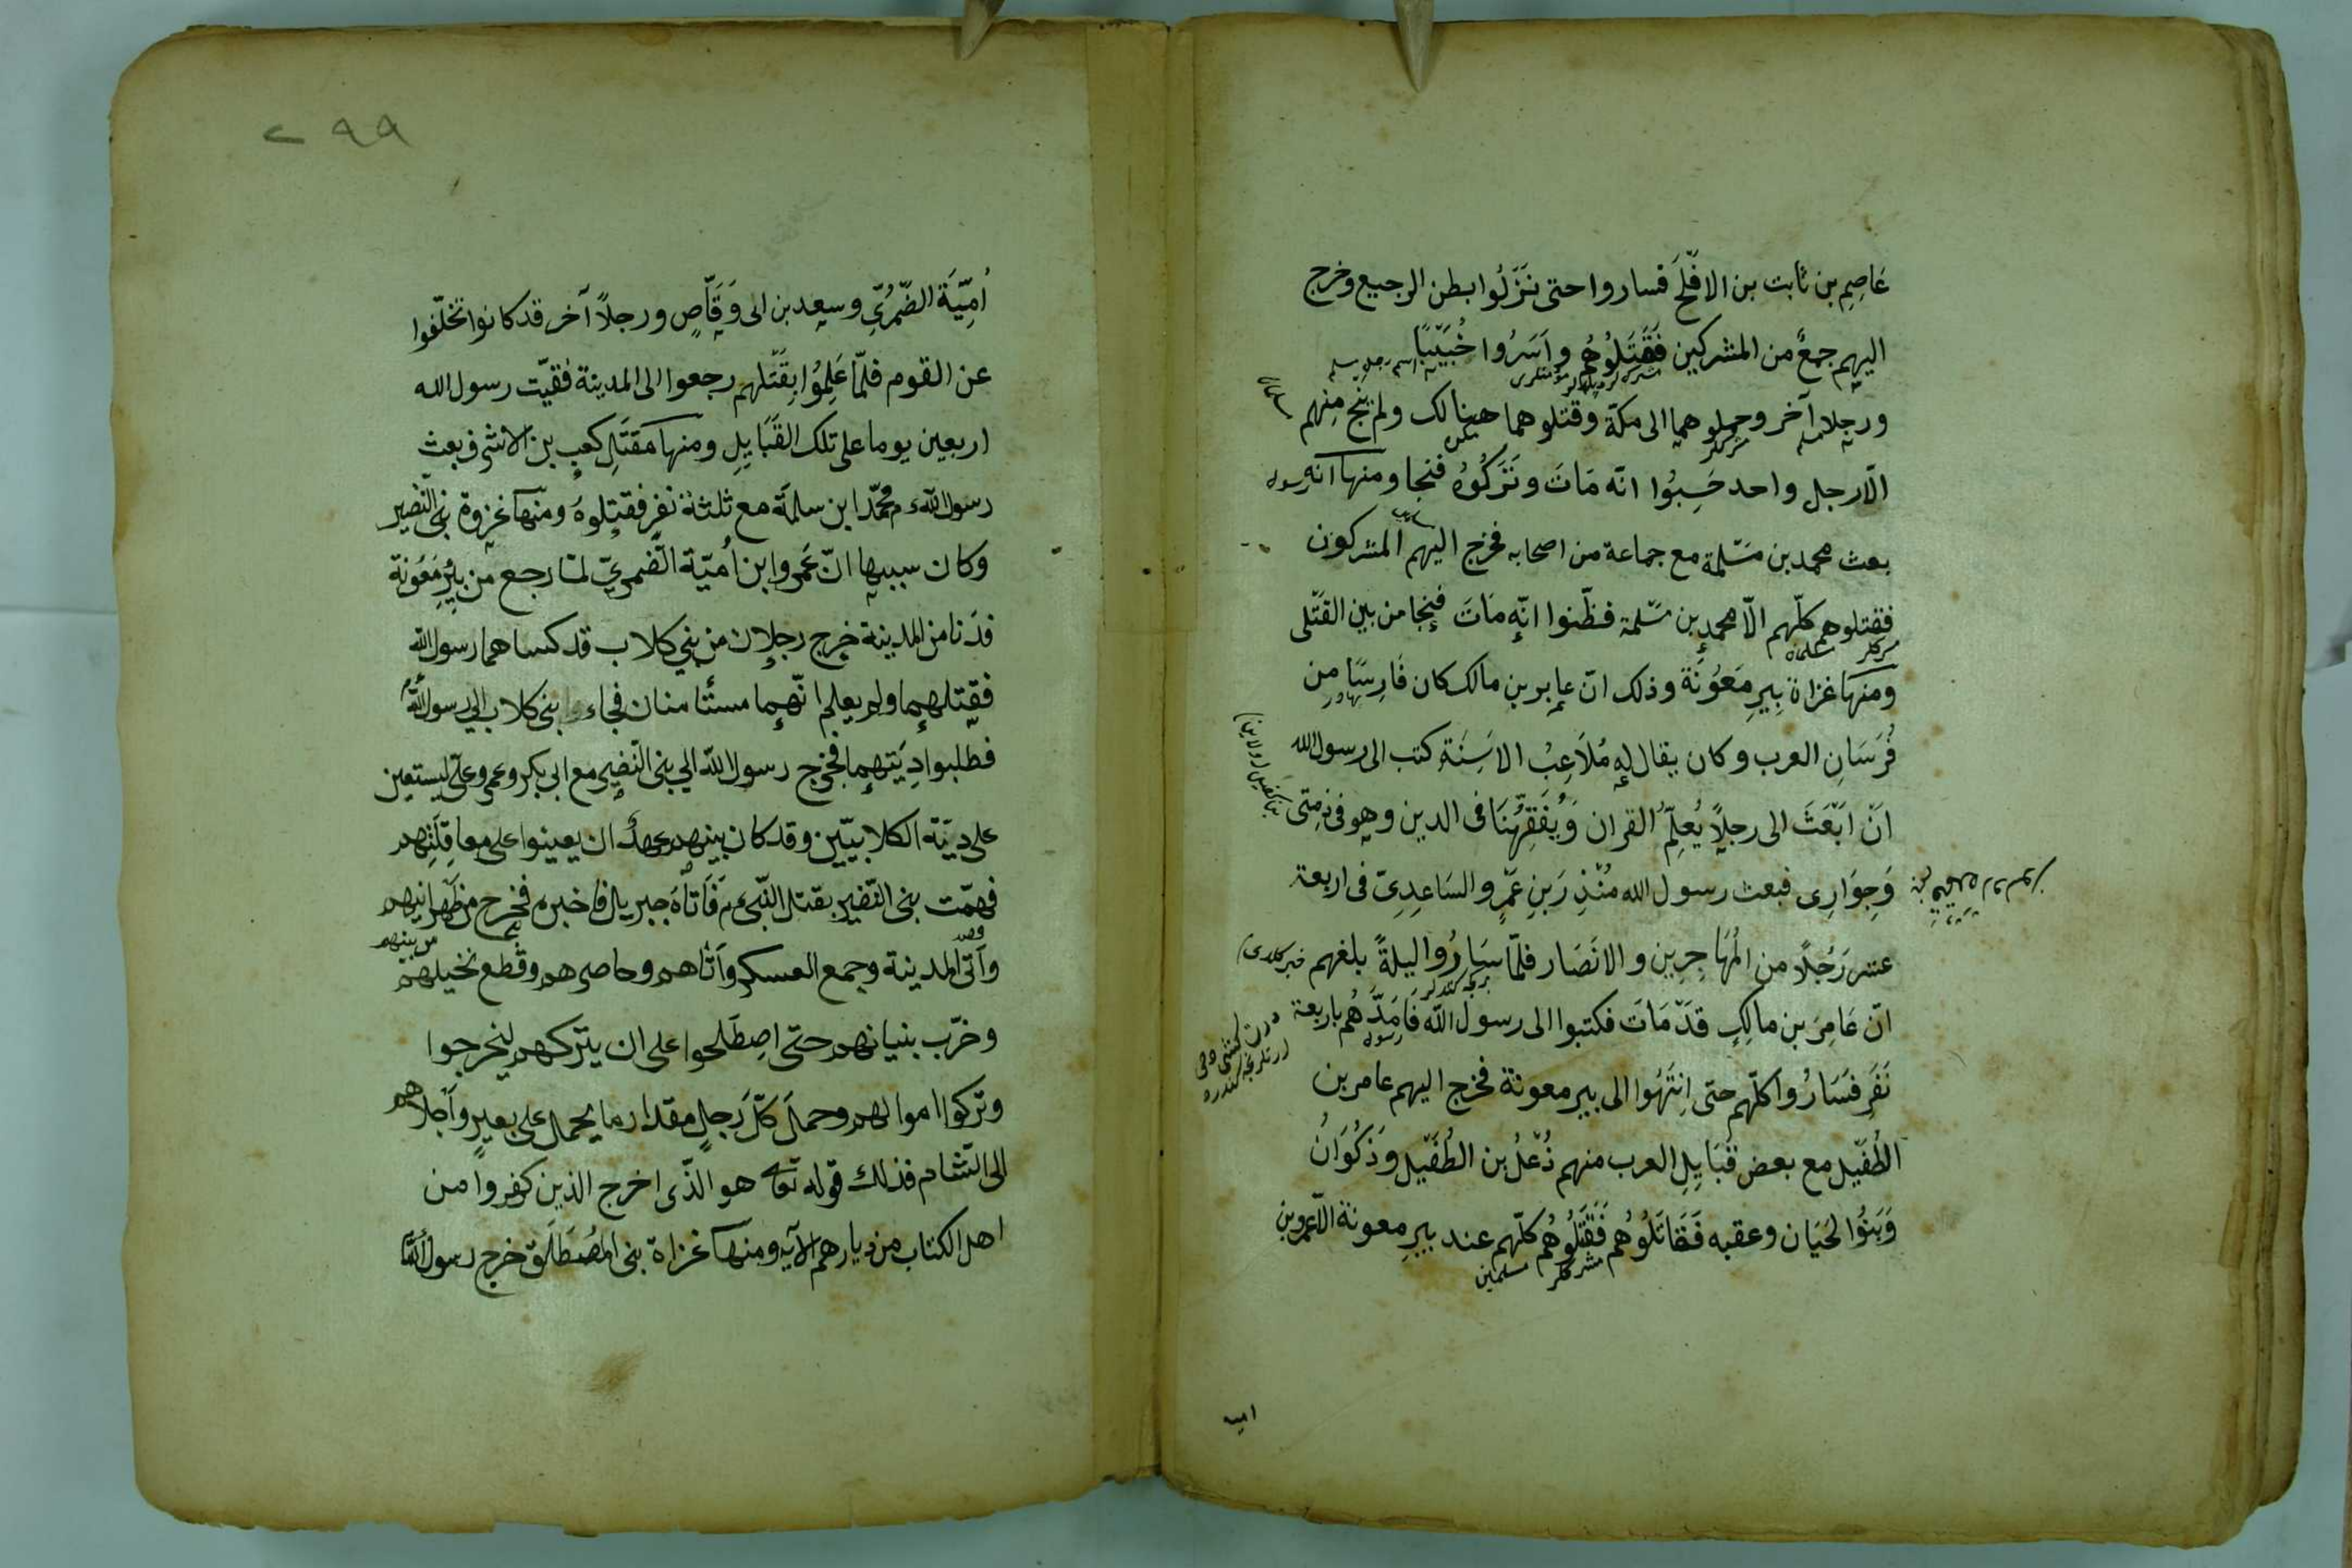 عَاصِمِ بن ثابت بن الافْلَحِ فساروا حتى نَزَلُوا بطن الرجيع وخرج
اليهم جمعٌ من المشركين فَقَتَلُوهُم وأَسَرُوا خُبَيْبًا
ورجلا آخر وحملوهما الى مكّة وقتلوهما هينالك ولم يَنْجُ مِنهم
الّا رجل واحد حَسِبُوا انّه مَاتَ وتَرَكُوُهُ فنجا ومنها انه
بعث محمد بن مَسْلَمة مع جماعة من اصحابه فخرج اليهم المشركون
فقتلوهم كلّهم الّا محمد بن مسْلمة فظّنوا انّه مَاتَ فنجا من بين القَتْلى
ومنها غزاة بِيرِ مَعُونَة وذلك انّ عامر بن مالك كان فَارِسًا مِن
فُرسَانِ العرب وكان يقال له مُلَاعِبُ الاَسِنَةِ كتب الى رسول الله
انْ ابْعَثْ الى رجلًا يُعلِمُ القران وَيُفَقِّهُنَا فى الدين وهو فى ذِمتى
وَجِوَارِى فبعث رسول الله مُنْذِرَ بنِ عَمْرٍو السَاعِدِىّ فى اربعة
عشر رَجُلًا من المُهَاجِرِين والانْصَار فلمّا سَارُوا ليلةً بلغهم
انّ عَامِرَ بن مالِكٍ قدْ مَاتَ فكتبوا الى رسول الله فَاَمَدَّهُم باربعة
نَفَرٍ فَسَارُوا كلّهم حتى اِنتَهَوا الى بير معونة فخرج اليهم عامر بن
الطُفَيْل مع بعض قَبَايِلِ العرب منهم ذُعْلُ بن الطُفَيْل وَذَكْوَانُ
وَبَنُوا لَحْيَان وعقبه فَقَاتَلُوهُم فَقَتَلُوهُم كلّهم عند بيرِ معونة الّا عمرو بن
مشركلر مسلمين
اميه
٢٩٩
اُمِيَّةَ الضّمْرِىِّ وسعد بن ابى وَقَّاصٍ ورجلاً آخر قد كانوا تخلّفوا
عن القوم فلمّا عَلِمُوا بِقَتْلهم رجعوا الى المدينة فقنّت رسول الله
اربعين يوما على تلك القَبَايِلِ ومنها مقتَلِ كعب بن الاشرف بعث
رسول الله محمّد ابن سلمَة مع ثلثة نفرٍ فقتلوهُ ومنها غزوة بنى النّضير
وكان سببها انّ عَمرو ابن اُميّة الضّمرىّ لمّا رجع من بِئْرِ مَعُونة
فدَنا من المدينة خرج رجلان من بني كلاب قد كساهما رسول الله
فقتلهما ولم يعلم انّهما مستأمنان فجاء بنى كلاب الى رسول الله
فطلبوا دِيَتهما فخرج رسول الله الى بنى النّضير مع ابى بكر وعمر وعلى ليستعين
على دِيَة الكلابيّين وقد كان بينهم عهدٌ ان يعينوا على معاقِلَتِهم
فهمّت بنى النّضير بقتل النّبى فَاَتَاهُ جبريل فاخبره فخرج من ظَهرانيهم
وأتى المدينة وجمع العسكر وأتاهم وحاصرهم وقطع نخيلهم
وخرّب بنيانهم حتى اصطَلحوا على ان يتركهم ليخرجوا
وتركوا اموالهم وحملَ كلّ رَجلٍ مقدار ما يحمل على بعيرٍ وأجلاهم
الى الشّام فذلك قوله تعا هو الذّى اخرج الذين كفروا من
اهل الكتاب من ديارهم الآية ومنها غزاة بنى المُصْطَلَق خرج رسول الله